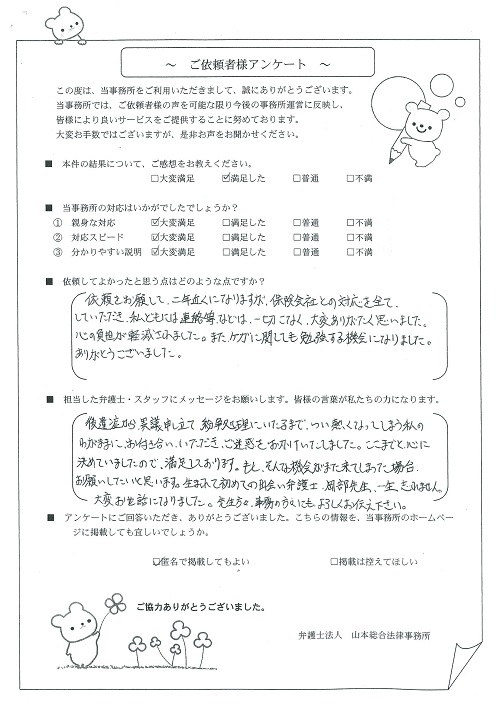 ～ ご依頼者様アンケート ～
この度は、当事務所をご利用いただきまして、誠にありがとうございます。
当事務所では、ご依頼者様の声を可能な限り今後の事務所運営に反映し、
皆様により良いサービスをご提供することに努めております。
大変お手数ではございますが、是非お声をお聞かせください。
■ 本件の結果について、ご感想をお教えください。
□大変満足 ☑満足した □普通 □不満
■ 当事務所の対応はいかがでしたでしょうか？
① 親身な対応 ☑大変満足 □満足した □普通 □不満
② 対応スピード ☑大変満足 □満足した □普通 □不満
③ 分かりやすい説明 ☑大変満足 □満足した □普通 □不満
■ 依頼してよかったと思う点はどのような点ですか？
依頼をお願して、二年近くになりますが、保険会社との対応を全て、
していただき、私どもには連絡等などは、一切こなく、大変ありがたく思いました。
心の負担が軽減されました。また、ケガに関しても勉強する機会になりました。
ありがとうございました。
■ 担当した弁護士・スタッフにメッセージをお願いします。皆様の言葉が私たちの力になります。
後遺症から異議申し立て 紛争処理にいたるまで、つい熱くなってしまう私の
わがままに、お付き合いいただき、ご迷惑をおかけいたしました。ここまでと、心に
決めていましたので、満足しております。もし、そんな機会がまた来てしまった場合、
お願いしたいと思います。生まれて初めての出会い弁護士、岡部先生、一生、忘れません。
大変お世話になりました。先生方々、事務の方々にもよろしくお伝え下さい。
■ アンケートにご回答いただき、ありがとうございました。こちらの情報を、当事務所のホームペー
ジに掲載しても宜しいでしょうか。
☑匿名で掲載してもよい □掲載は控えてほしい
ご協力ありがとうございました。
弁護士法人 山本総合法律事務所